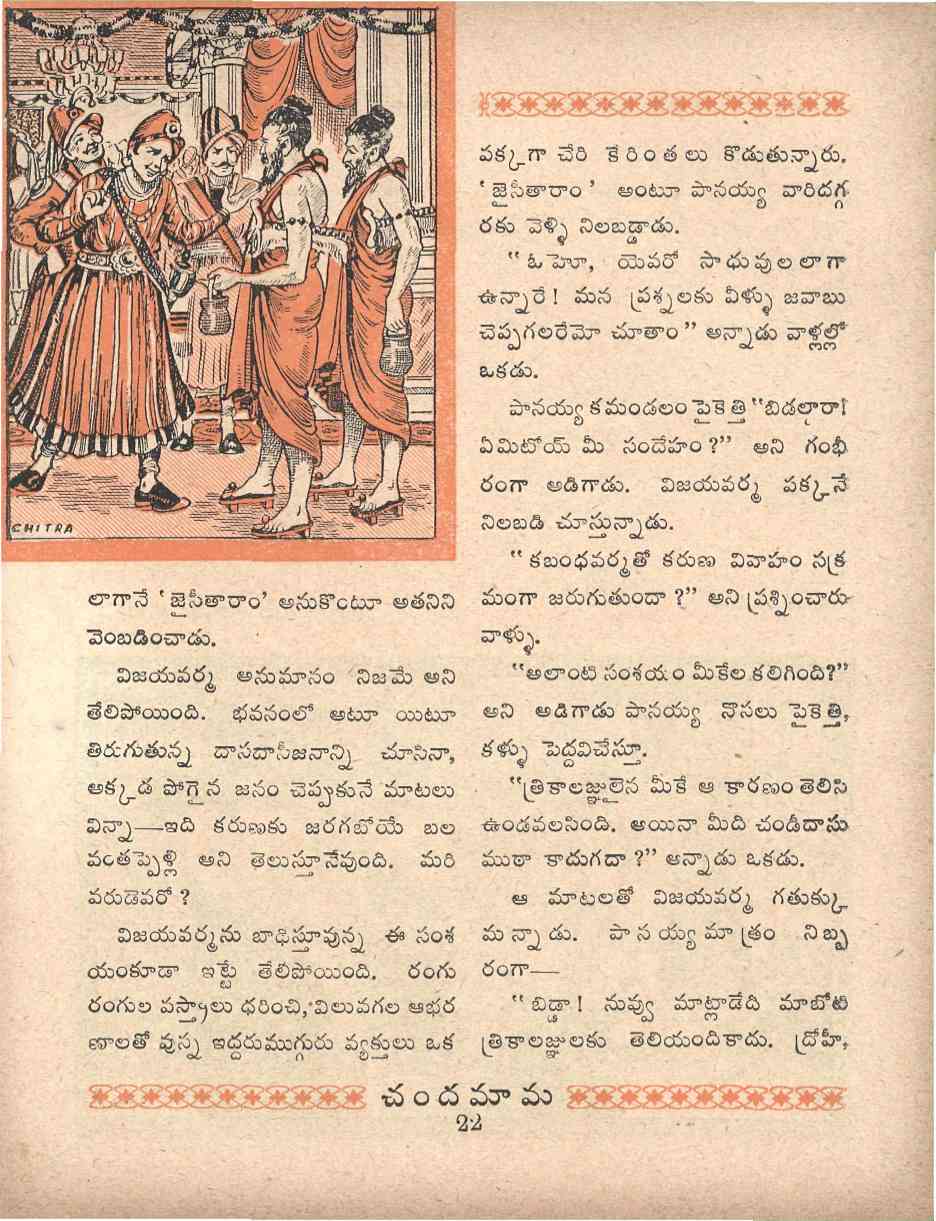 CHITRA
లాగానే ‘జైసీతారాం’ అనుకొంటూ అతనిని
వెంబడించాడు.
విజయవర్మ అనుమానం నిజమే అని
తేలిపోయింది. భవనంలో అటూ యిటూ
తిరుగుతున్న దాసదాసీజనాన్ని చూసినా,
అక్కడ పోగైన జనం చెప్పుకునే మాటలు
విన్నా—ఇది కరుణకు జరగబోయే బల
వంతప్పెళ్లి అని తెలుస్తూనేవుంది. మరి
వరుడెవరో ?
విజయవర్మను బాధిస్తూవున్న ఈ సంశ
యంకూడా ఇట్టే తేలిపోయింది. రంగు
రంగుల వస్త్రాలు ధరించి, విలువగల ఆభర
ణాలతో వున్న ఇద్దరుముగ్గురు వ్యక్తులు ఒక
పక్కగా చేరి కేరింతలు కొడుతున్నారు.
‘జైసీతారాం’ అంటూ పానయ్య వారిదగ్గ
రకు వెళ్ళి నిలబడ్డాడు.
“ఓహో, యెవరో సాధువులలాగా
ఉన్నారే! మన ప్రశ్నలకు వీళ్ళు జవాబు
చెప్పగలరేమో చూతాం” అన్నాడు వాళ్లల్లో
ఒకడు.
పానయ్య కమండలం పైకెత్తి “బిడలారా!
ఏమిటోయ్ మీ సందేహం?” అని గంభీ
రంగా అడిగాడు. విజయవర్మ పక్కనే
నిలబడి చూస్తున్నాడు.
“కబంధవర్మతో కరుణ వివాహం సక్ర
మంగా జరుగుతుందా ?” అని ప్రశ్నించారు
వాళ్ళు.
“అలాంటి సంశయం మీకేల కలిగింది?”
అని అడిగాడు పానయ్య నొసలు పైకెత్తి,
కళ్ళు పెద్దవిచేస్తూ.
“త్రికాలజ్ఞులైన మీకే ఆ కారణం తెలిసి
ఉండవలసింది. అయినా మీది చండీదాసు
ముఠా కాదుగదా ?” అన్నాడు ఒకడు.
ఆ మాటలతో విజయవర్మ గతుక్కు
మన్నాడు. పానయ్యమాత్రం నిబ్బ
రంగా—
“బిడ్డా! నువ్వు మాట్లాడేది మాబోటి
త్రికాలజ్ఞులకు తెలియందికాదు. ద్రోహీ,
చందమామ
22